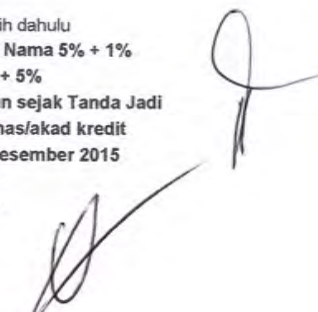 ih dahulu
Nama 5% + 1%
+ 5%
n sejak Tanda Jadi
nas/akad kredit
esember 2015